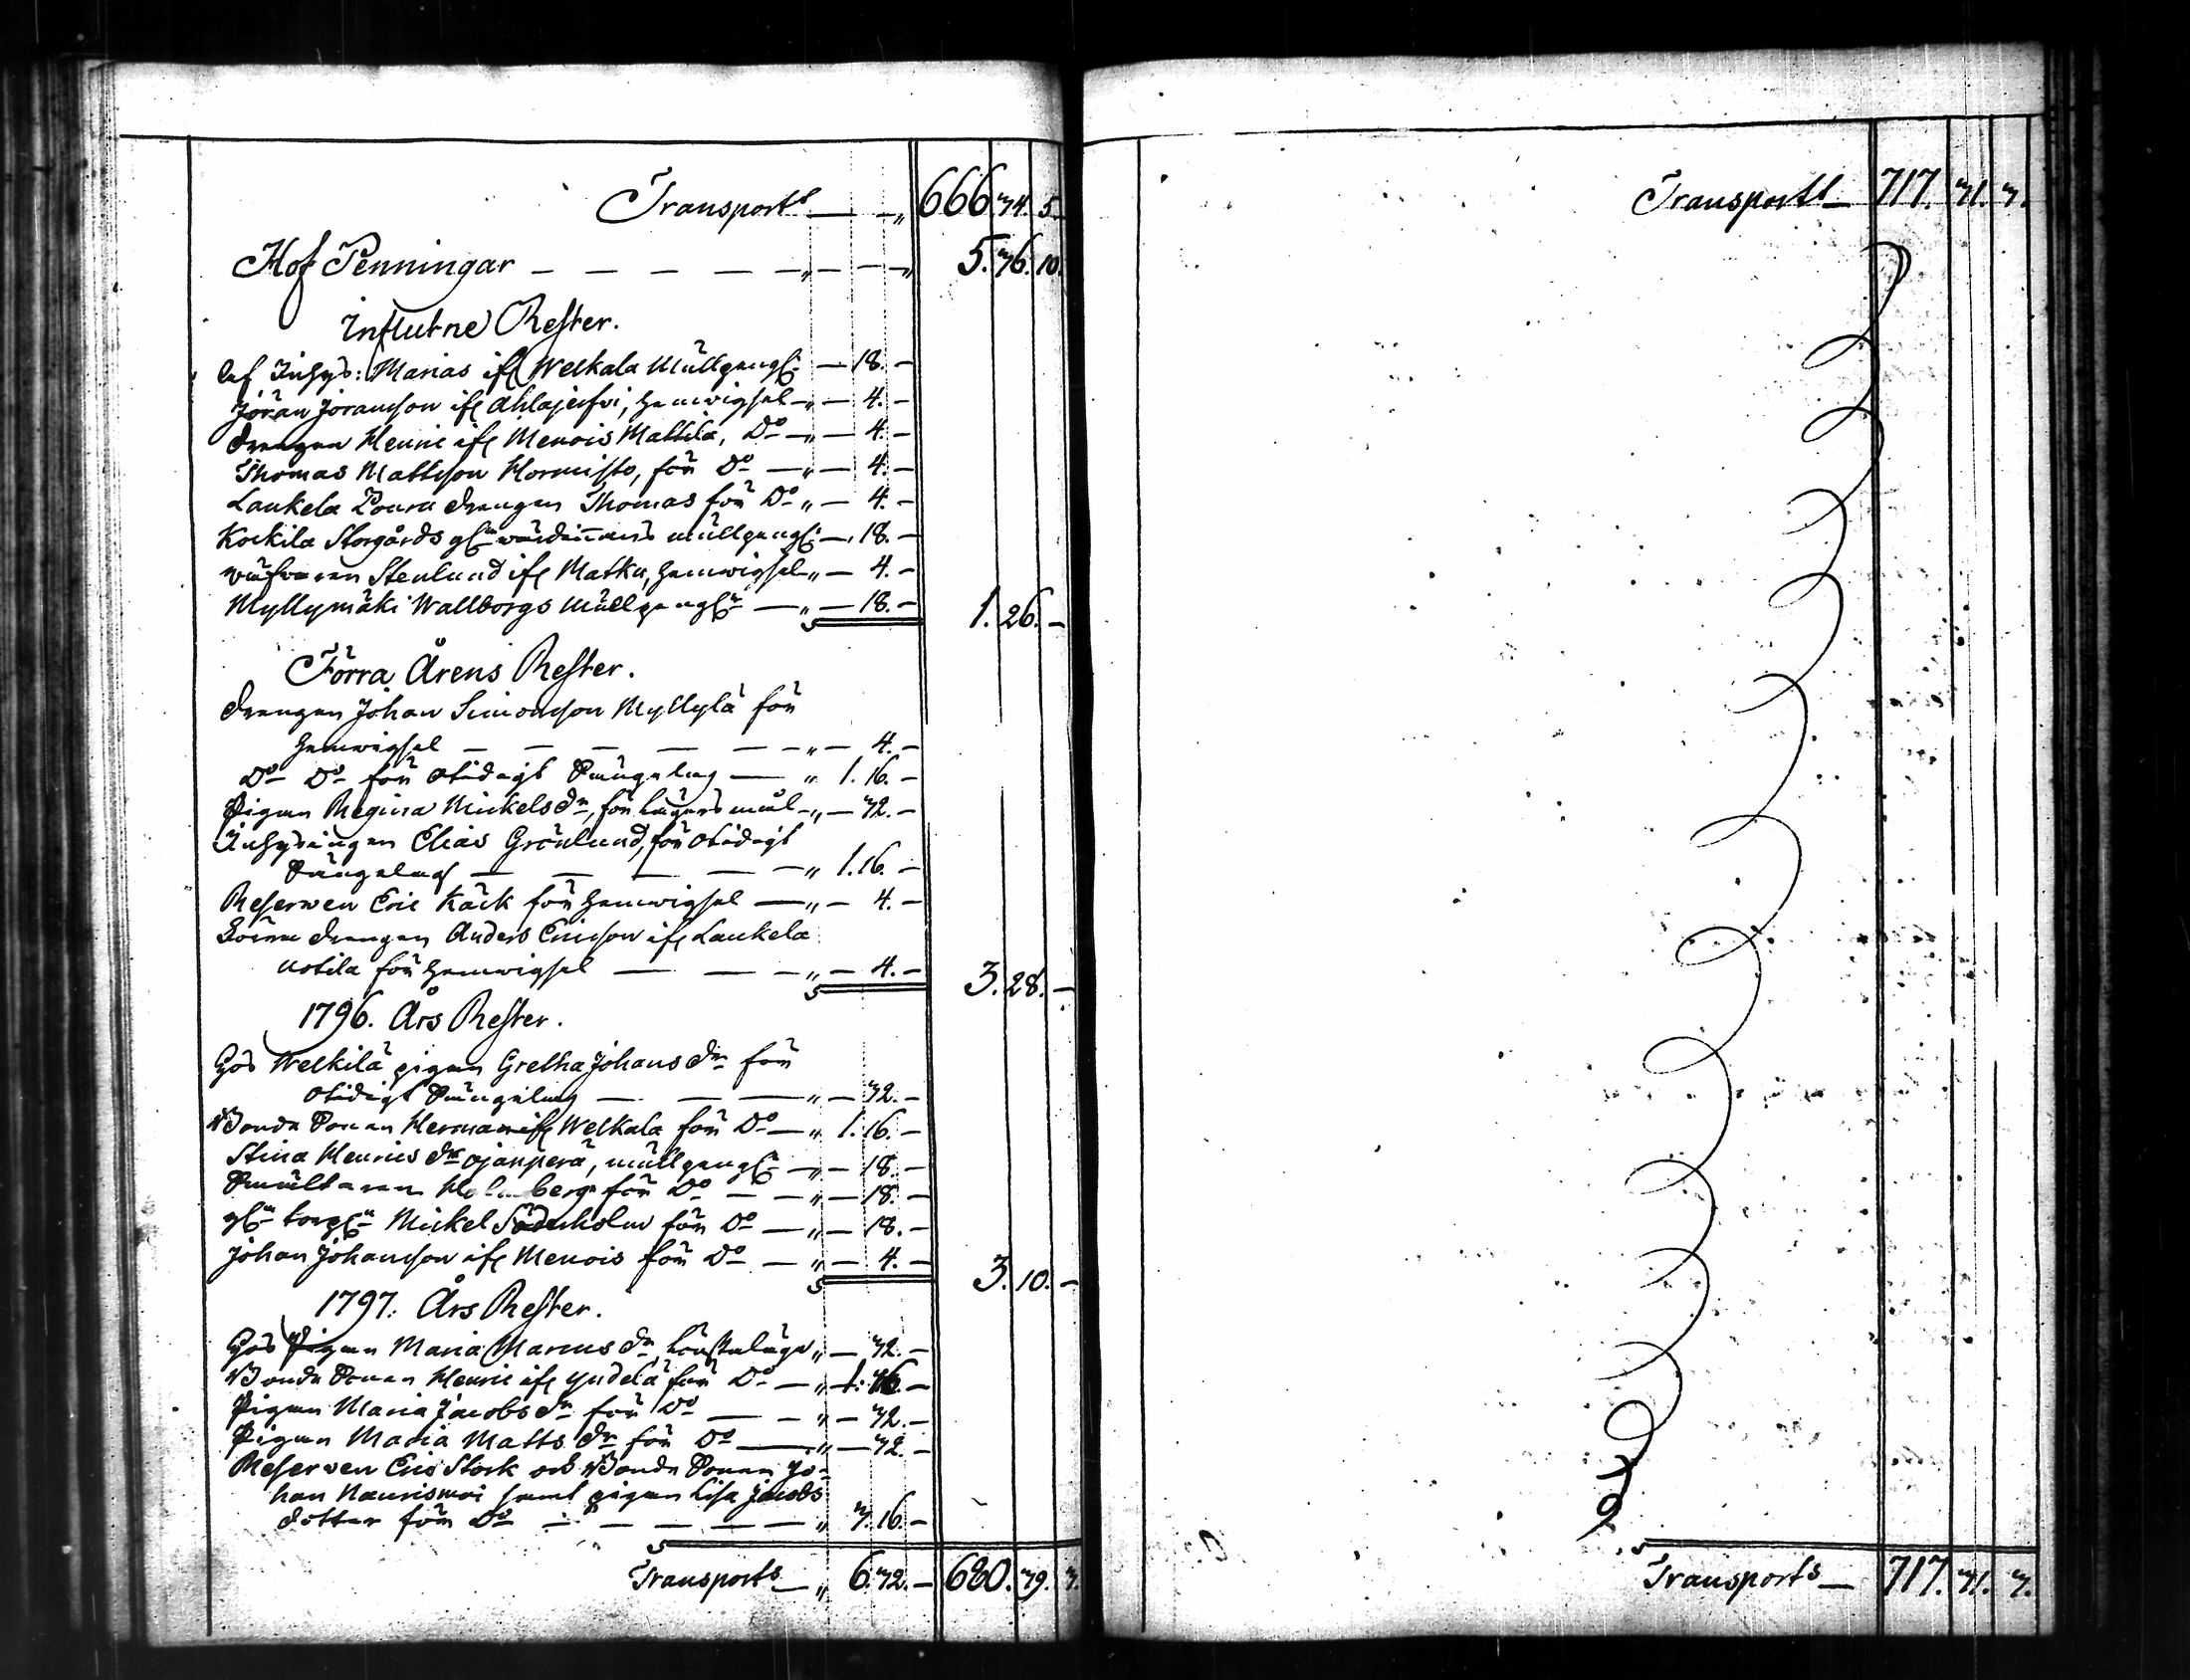 Transport — — „ 666. 74. 5.
Hof Penningar — — — — — „ — — „ 5. 76. 10.
Influtne Rester.
Marias ifr Welkala Mullpengr — 18. —
Jöran Joranson ifr Ahlajerfvi, hemwigsel — „ — 4. —
drengen Henric ifr Menois Mattila, Do — „ — 4. —
Thomas Mattson Hormisto, för Do — „ — 4. —
Laukela drengen Thomas för Do „ — 4. —
Kockila Storgårds wärdinnans mullpengr — „ 18. —
Stenlund ifr Matku, hemwigsel „ — 4. —
Myllymäki Wallborgs Mullpengr — „ — 18. — 1. 26. —
Förra Årens Rester.
drengen Johan Simonson Myllylä för
hemwigsel — — — — — „ — 4. —
Do Do för otidigt Sängelag — „ 1. 16. —
Pigan Regina Mickels dr, för lägersmål — „ — 72. —
Inhysingen Elias Grönlund, för otidigt
Sängelag — — — — „ 1. 16. —
Reserwen Eric Käck för hemwigsel — „ — 4. —
drengen Anders Ericson ifr Laukela
Uotila för hemwigsel — — — „ — 4. — 3. 28. —
1796. Års Rester.
Hos Welkilä pigan Gretha Johans dr för
otidigt Sängelag — — — „ — 72. —
Bonde Sonen Herman ifr Welkala för Do — „ 1. 16. —
Stina Henrics dr Ojanperä, mullpengr — „ — 18. —
Holmberg för Do — — „ — 18. —
Mickel Söderholm för Do — „ — 18. —
Johan Johanson ifr Menois för Do — „ — 4. — 3. 10. —
1797. Års Rester.
Hos Pigan Maria Marcus dr „ — 72. —
Bonde Sonen Henric ifr för Do — „ 1. 16. —
Pigan Maria Jacobs dr för Do — — „ — 72. —
Pigan Maria Matts dr för Do — „ — 72. —
Reserwen Eric Stork och Bonde Sonen Jo-
han Naurismoi samt pigan Lisa Jacobs
dotter för Do — — — — — „ 16. —
Transport — „ 6. 72. — 680. 79. 7.
Transport — 717. 71. 7.
Transport — 717. 71. 7.